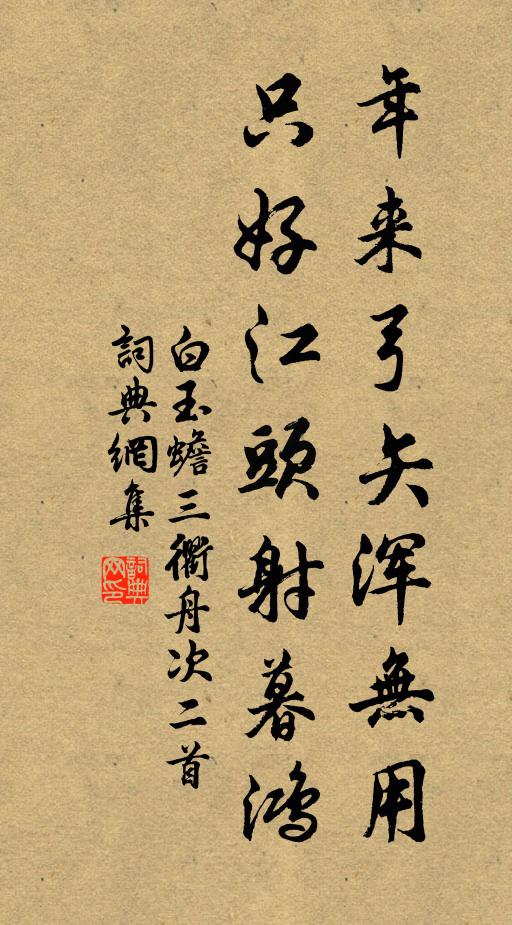 年来弓矢渾無用
只好江頭射暮鴻
白玉蟾三衢舟次二首
詞典網集
詞典網印